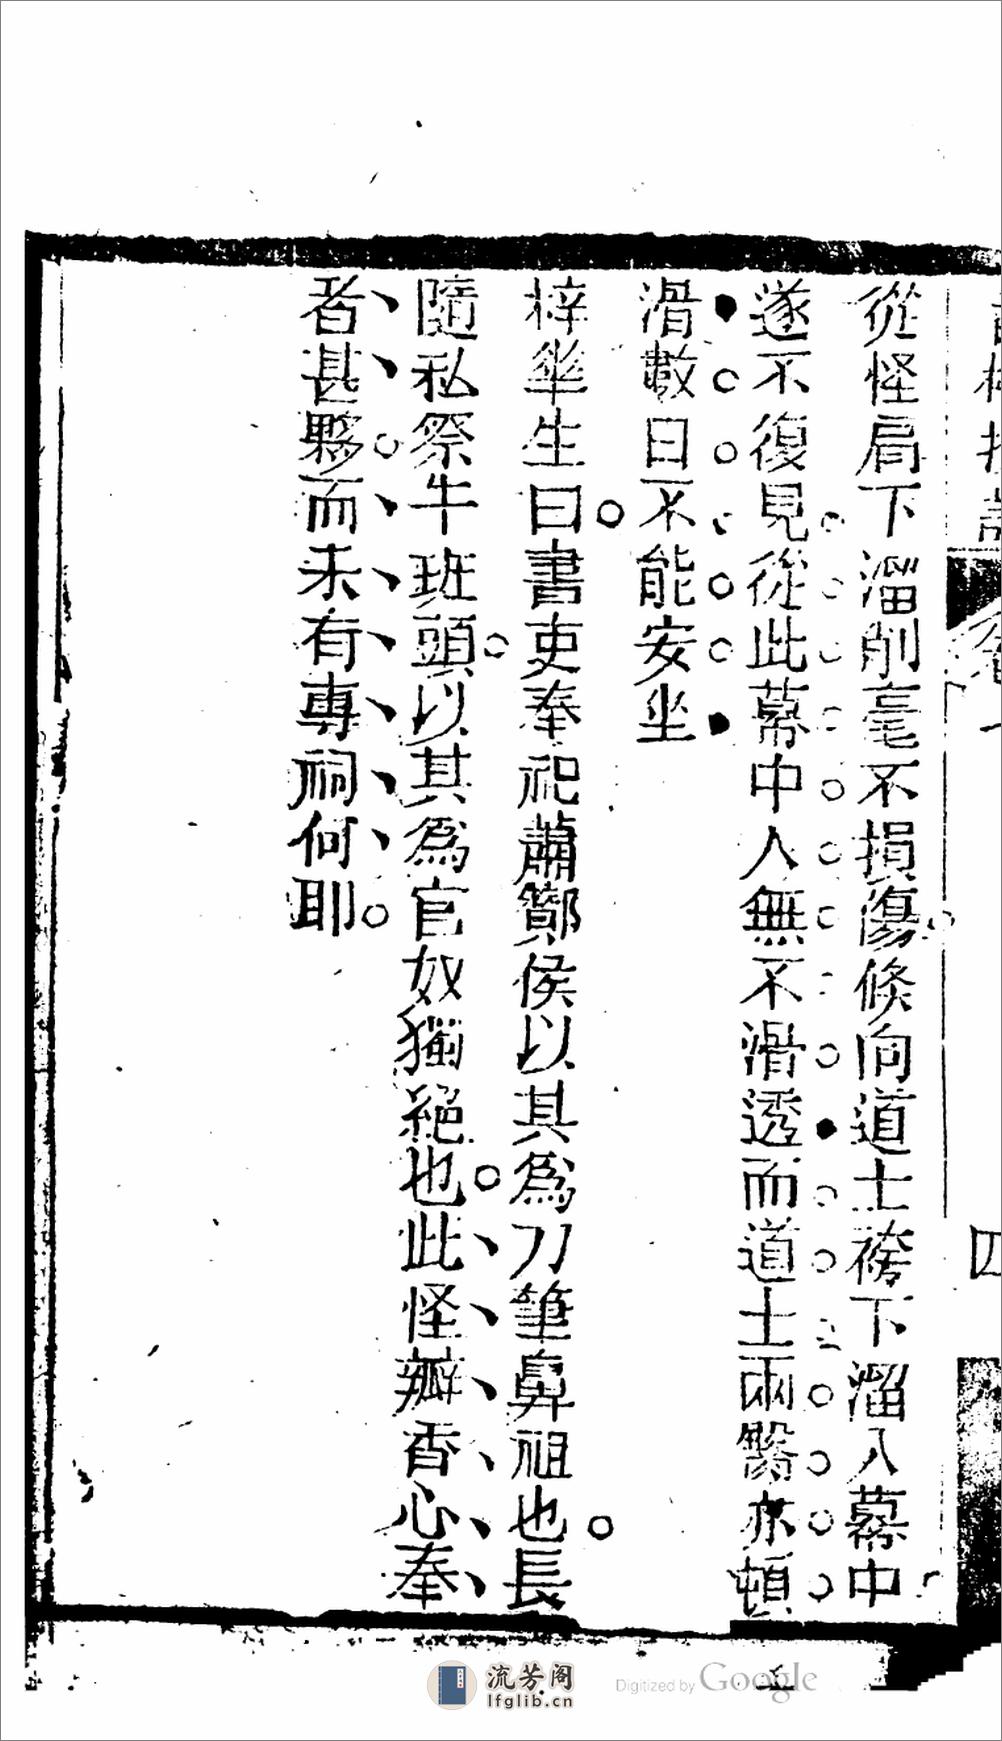 從怪肩下溜削毫不損傷倐向道士袴下溜入幕中
遂不復見從此幕中人無不滑透而道士兩臋亦頓
滑數日不能安坐
梓華生曰書吏奉祀蕭酇侯以其爲刀筆鼻祖也長
隨私祭牛班頭以其爲官奴獨絕也此怪瓣香心奉
者甚夥而未有專祠何耶
四
流芳阁
lfglib.cn
Digitized by Google